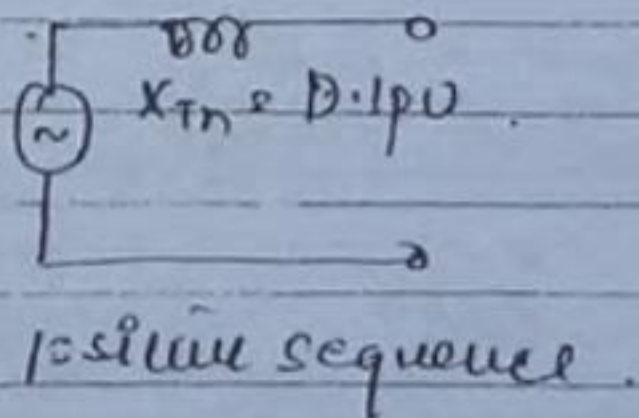 ~
X_Th = 0.1pU.
positive sequence.